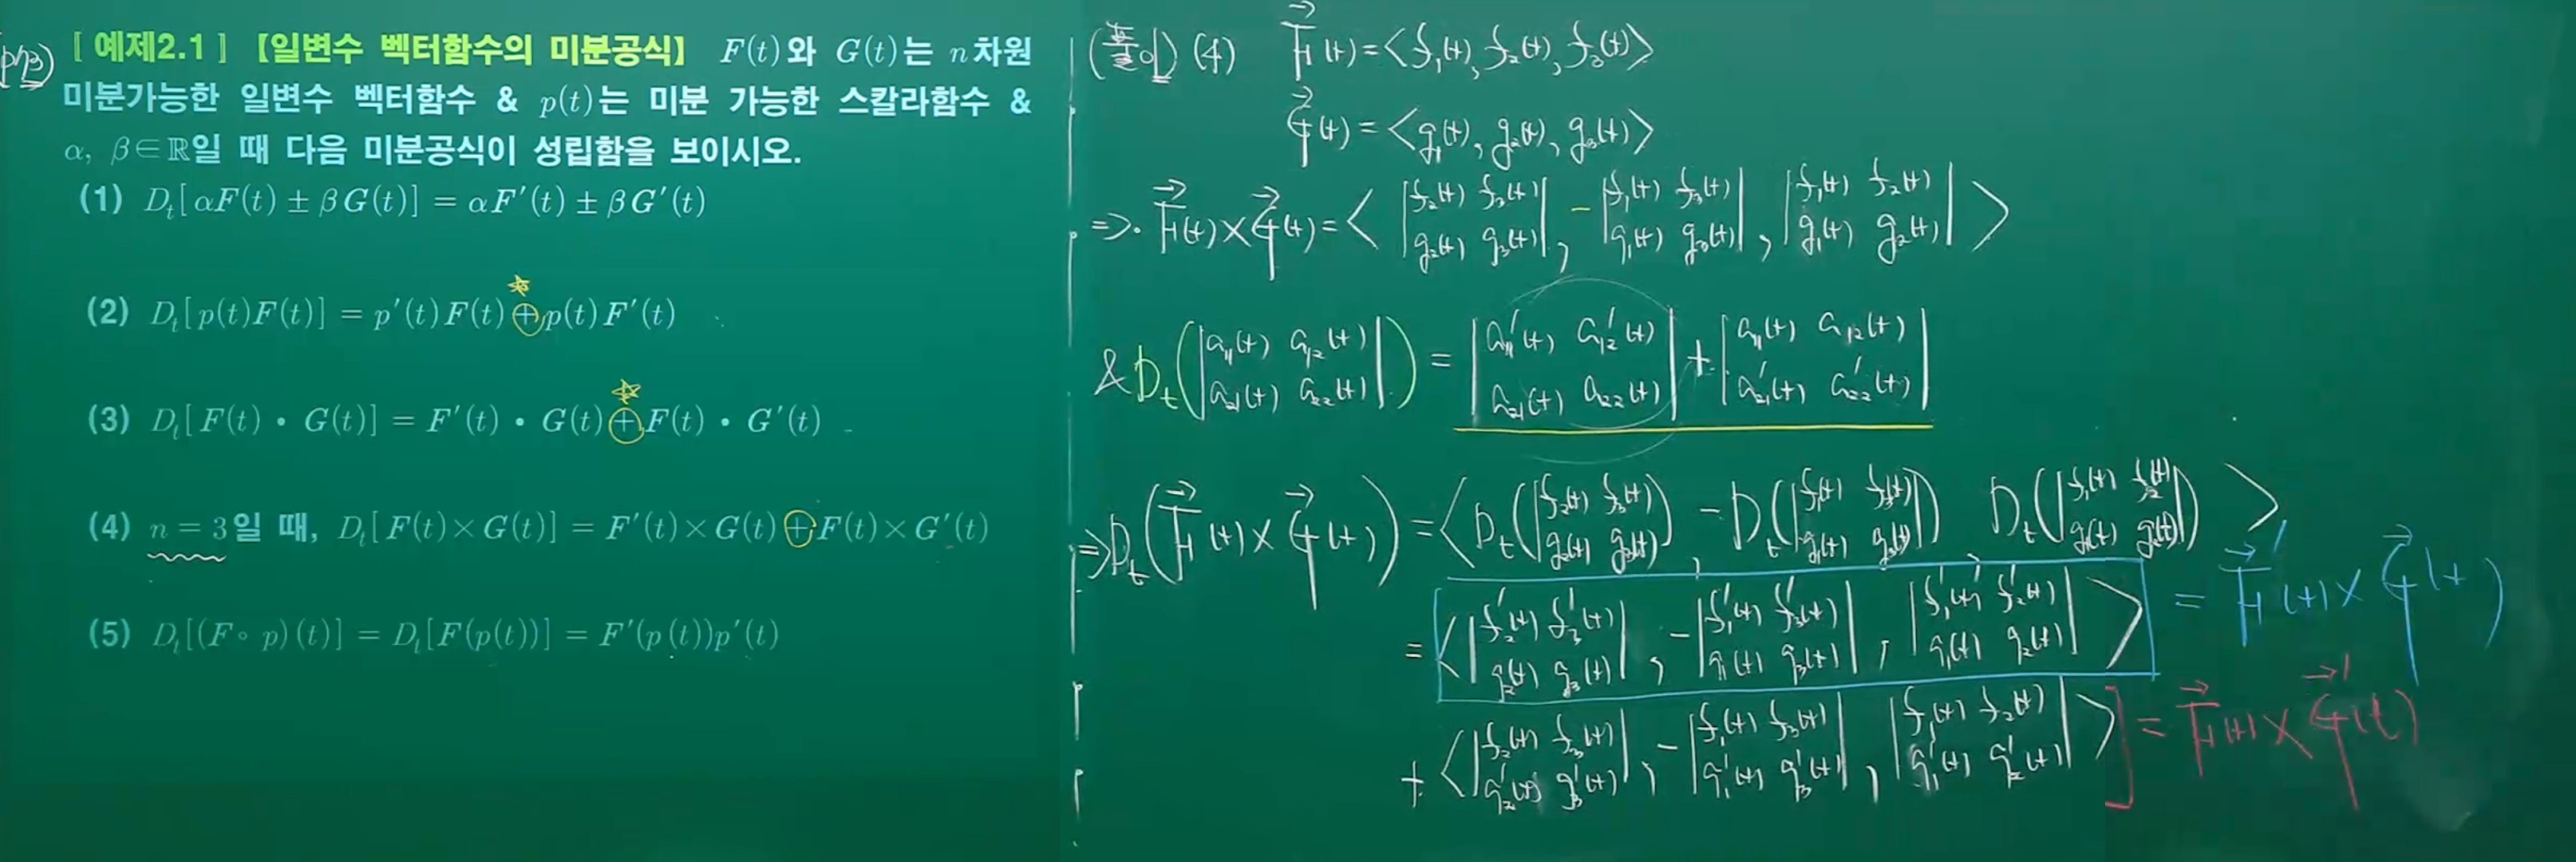 p13)
[ 예제2.1 ] 【일변수 벡터함수의 미분공식】 F(t)와 G(t)는 n차원
미분가능한 일변수 벡터함수 & p(t)는 미분 가능한 스칼라함수 &
α, β∈ℝ일 때 다음 미분공식이 성립함을 보이시오.
(1) Dₜ[αF(t) ± βG(t)] = αF′(t) ± βG′(t)
(2) Dₜ[p(t)F(t)] = p′(t)F(t) ⊕ p(t)F′(t)
(3) Dₜ[F(t) • G(t)] = F′(t) • G(t) ⊕ F(t) • G′(t)
(4) n = 3일 때, Dₜ[F(t)×G(t)] = F′(t)×G(t) ⊕ F(t)×G′(t)
(5) Dₜ[(F∘p)(t)] = Dₜ[F(p(t))] = F′(p(t))p′(t)
(풀이) (4) F⃗(t) = <f₁(t), f₂(t), f₃(t)>
G⃗(t) = <g₁(t), g₂(t), g₃(t)>
⇒. F⃗(t)×G⃗(t) = < |f₂(t) f₃(t)| , - |f₁(t) f₃(t)| , |f₁(t) f₂(t)| >
|g₂(t) g₃(t)| |g₁(t) g₃(t)| |g₁(t) g₂(t)|
& Dₜ( |a₁₁(t) a₁₂(t)| ) = |a₁₁′(t) a₁₂′(t)| + |a₁₁(t) a₁₂(t)|
|a₂₁(t) a₂₂(t)| |a₂₁(t) a₂₂(t)| |a₂₁′(t) a₂₂′(t)|
⇒ Dₜ( F⃗(t)×G⃗(t) ) = < Dₜ( |f₂(t) f₃(t)| ) , - Dₜ( |f₁(t) f₃(t)| ) , Dₜ( |f₁(t) f₂(t)| ) >
|g₂(t) g₃(t)| |g₁(t) g₃(t)| |g₁(t) g₂(t)|
= < |f₂′(t) f₃′(t)| , - |f₁′(t) f₃′(t)| , |f₁′(t) f₂′(t)| > = F⃗′(t)×G⃗(t)
|g₂(t) g₃(t)| |g₁(t) g₃(t)| |g₁(t) g₂(t)|
+ < |f₂(t) f₃(t)| , - |f₁(t) f₃(t)| , |f₁(t) f₂(t)| > ] = F⃗(t)×G⃗′(t)
|g₂′(t) g₃′(t)| |g₁′(t) g₃′(t)| |g₁′(t) g₂′(t)|